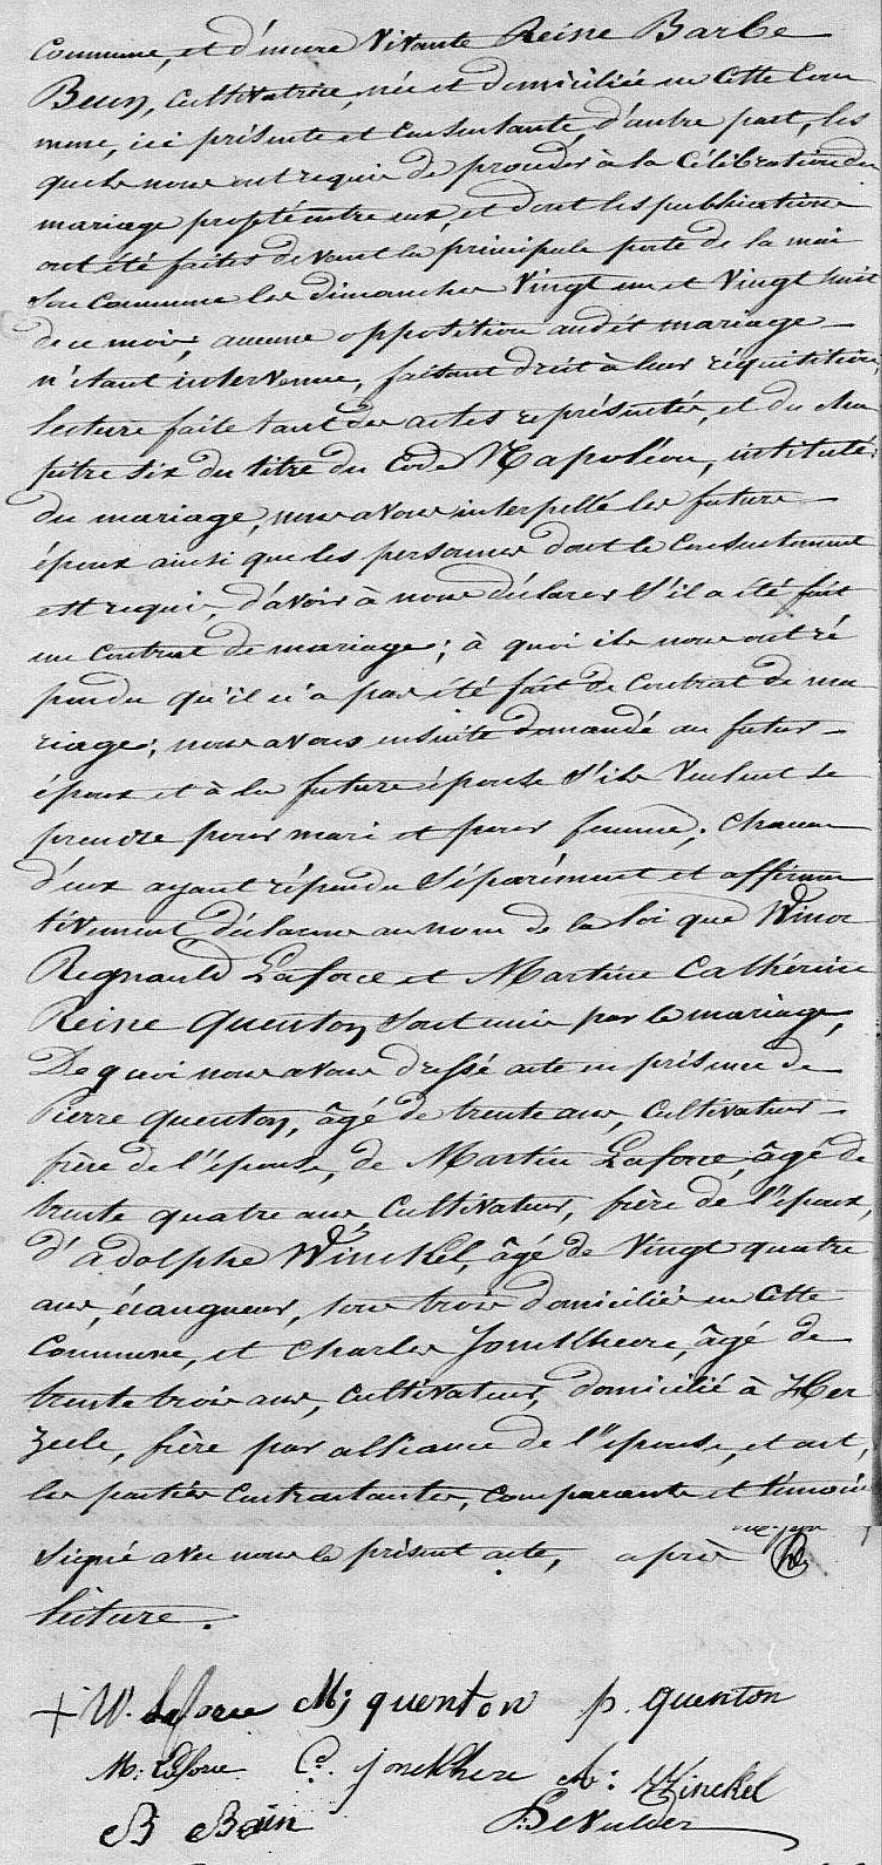 Commune, et d'encore vivante Reine Barbe
Beun, cultivatrice, née et domiciliée en cette com
mune, ici présente et consentante, d'autre part, les
quels nous ont requis de procéder à la célébration du
mariage projeté entre eux, et dont les publications
ont été faites devant la principale porte de la mai
son commune les dimanches vingt un et vingt huit
de ce mois, aucune opposition audit mariage
n'étant intervenue, faisant droit à leur réquisition,
lecture faite tant des actes représentés, et du cha
pitre six du titre du Code Napoléon, intitulé:
du mariage, nous avons interpellé les futurs
époux ainsi que les personnes dont le consentement
est requis, d'avoir à nous déclarer s'il a été fait
un contrat de mariage; à quoi ils nous ont ré
pondu qu'il n'a pas été fait de contrat de ma
riage; nous avons ensuite demandé au futur
époux et à la future épouse s'ils veulent se
prendre pour mari et pour femme; chacun
d'eux ayant répondu séparément et affirma
tivement déclarons au nom de la loi que Winoc
Regnauld Laforce et Martine Cathérine
Reine Quenton sont unis par le mariage,
De quoi nous avons dressé acte en présence de
Pierre Quenton, âgé de trente ans, cultivateur
frère de l'épouse, de Martin Laforce, âgé de
trente quatre ans, cultivateur, frère de l'époux,
d'adolphe Winckel, âgé de vingt quatre
ans, écangueur, tous trois domiciliés en cette
Commune, et Charles Jonckheere, âgé de
trente trois ans, cultivateur, domicilié à Her
zeele, frère par alliance de l'épouse, et ont,
les parties contractantes, comparante et témoins
signé avec nous le présent acte, après
lecture.
+ W. Laforce M; quenton p. quenton
M: Laforce C. jonckhere A: Winckel
B Beun DeVulder